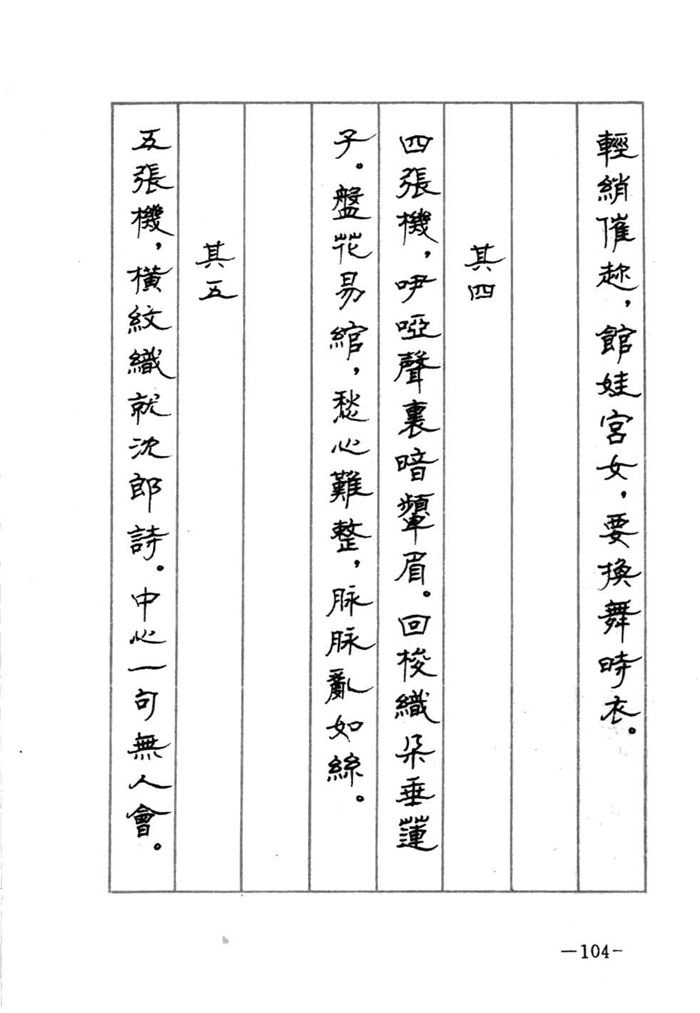 輕綃催趂，館娃宮女，要換舞時衣。
其四
四張機，咿啞聲裏暗顰眉。回梭織朵垂蓮
子。盤花易綰，愁心難整，脉脉亂如絲。
其五
五張機，橫紋織就沈郎詩。中心一句無人會。
—104-